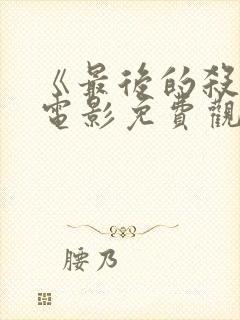 《最後的殺
電影免費觀
腰乃